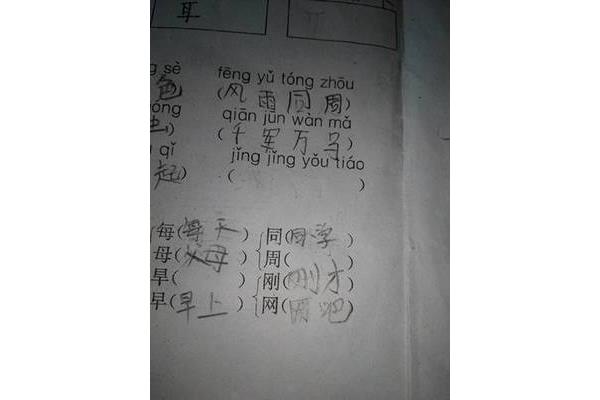 耳
g sè fēng yǔ tóng zhōu
色 (风雨同周)
óng qiān jūn wàn mǎ
) (千军万马)
qǐ jǐng jǐng yǒu tiáo
起) ( )
每(每天) 同(同学)
母(父母) 周( )
早( ) 刚(刚才)
早(早上) 网(网吧)